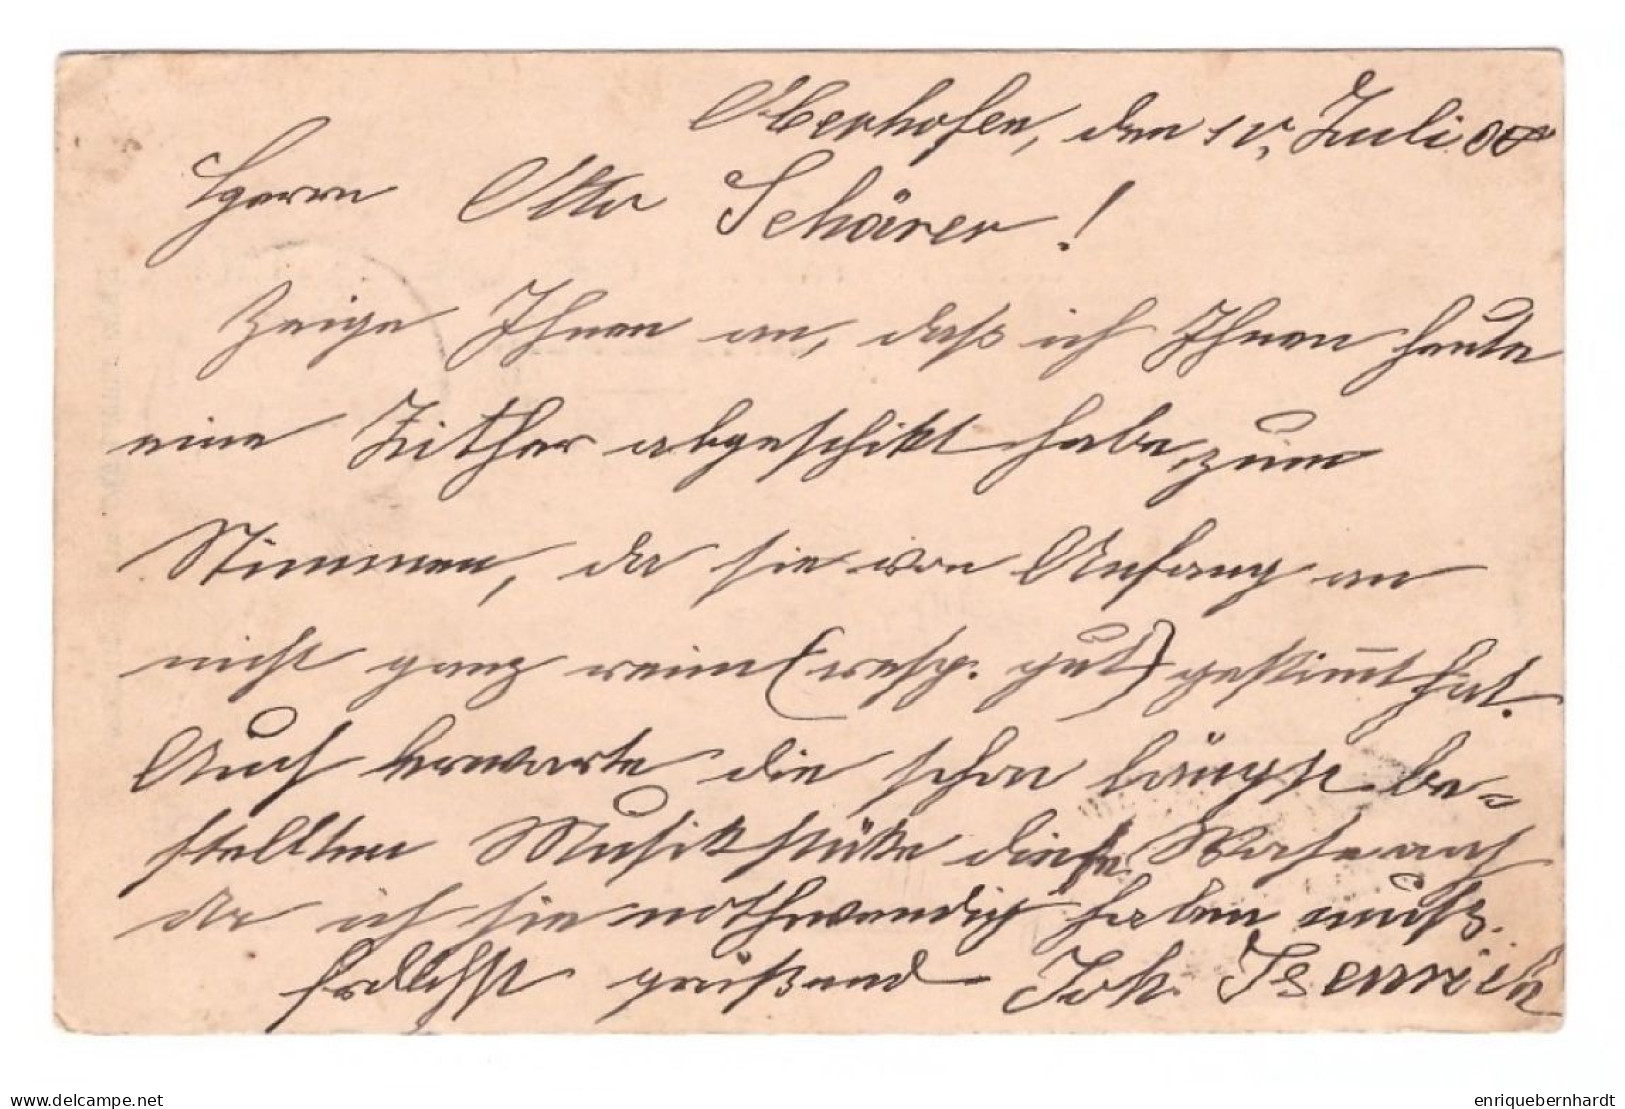 Oberhofen, den 10, Juli 00
Herrn Otto Schärer!
Zeige Ihnen an, daß ich Ihnen heute
eine Zither abgeschikt habe, zum
Stimmen, da sie von Anfang an
nicht ganz rein (resp. gut) gestimmt hat.
Auch erwarte die schon längst be=
stellten Musikstüke diese Woche auch
da ich sie nothwendig haben muß.
frdlchst grüßend Joh. Isenrich
delcampe.net
enriquebernhardt